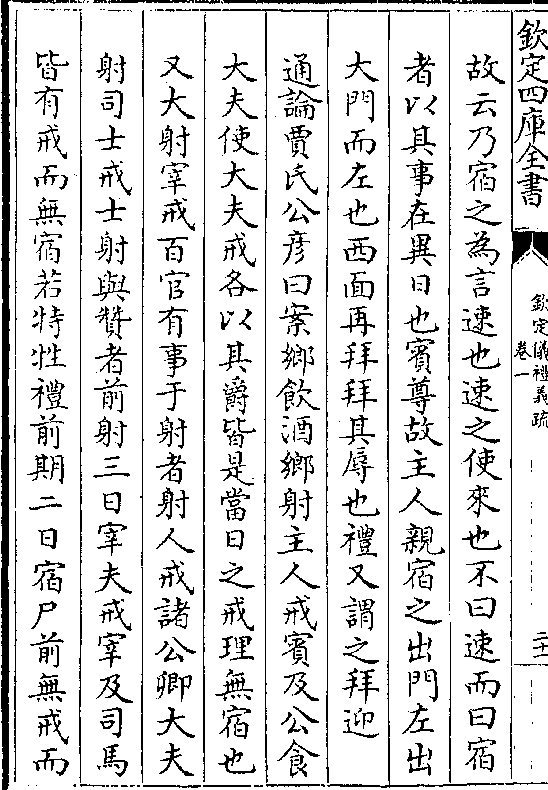 欽定四庫全書
欽定儀禮義疏
卷一
二十一
故云乃宿之為言速也速之使來也不曰速而曰宿
者以其事在異日也賓尊故主人親宿之出門左出
大門而左也西面再拜拜其辱也禮又謂之拜迎
通論賈氏公彥曰案鄉飲酒鄉射主人戒賓及公食
大夫使大夫戒各以其爵皆是當日之戒理無宿也
又大射宰戒百官有事于射者射人戒諸公卿大夫
射司士戒士射與贊者前射三日宰夫戒宰及司馬
皆有戒而無宿若特牲禮前期二日宿尸前無戒而